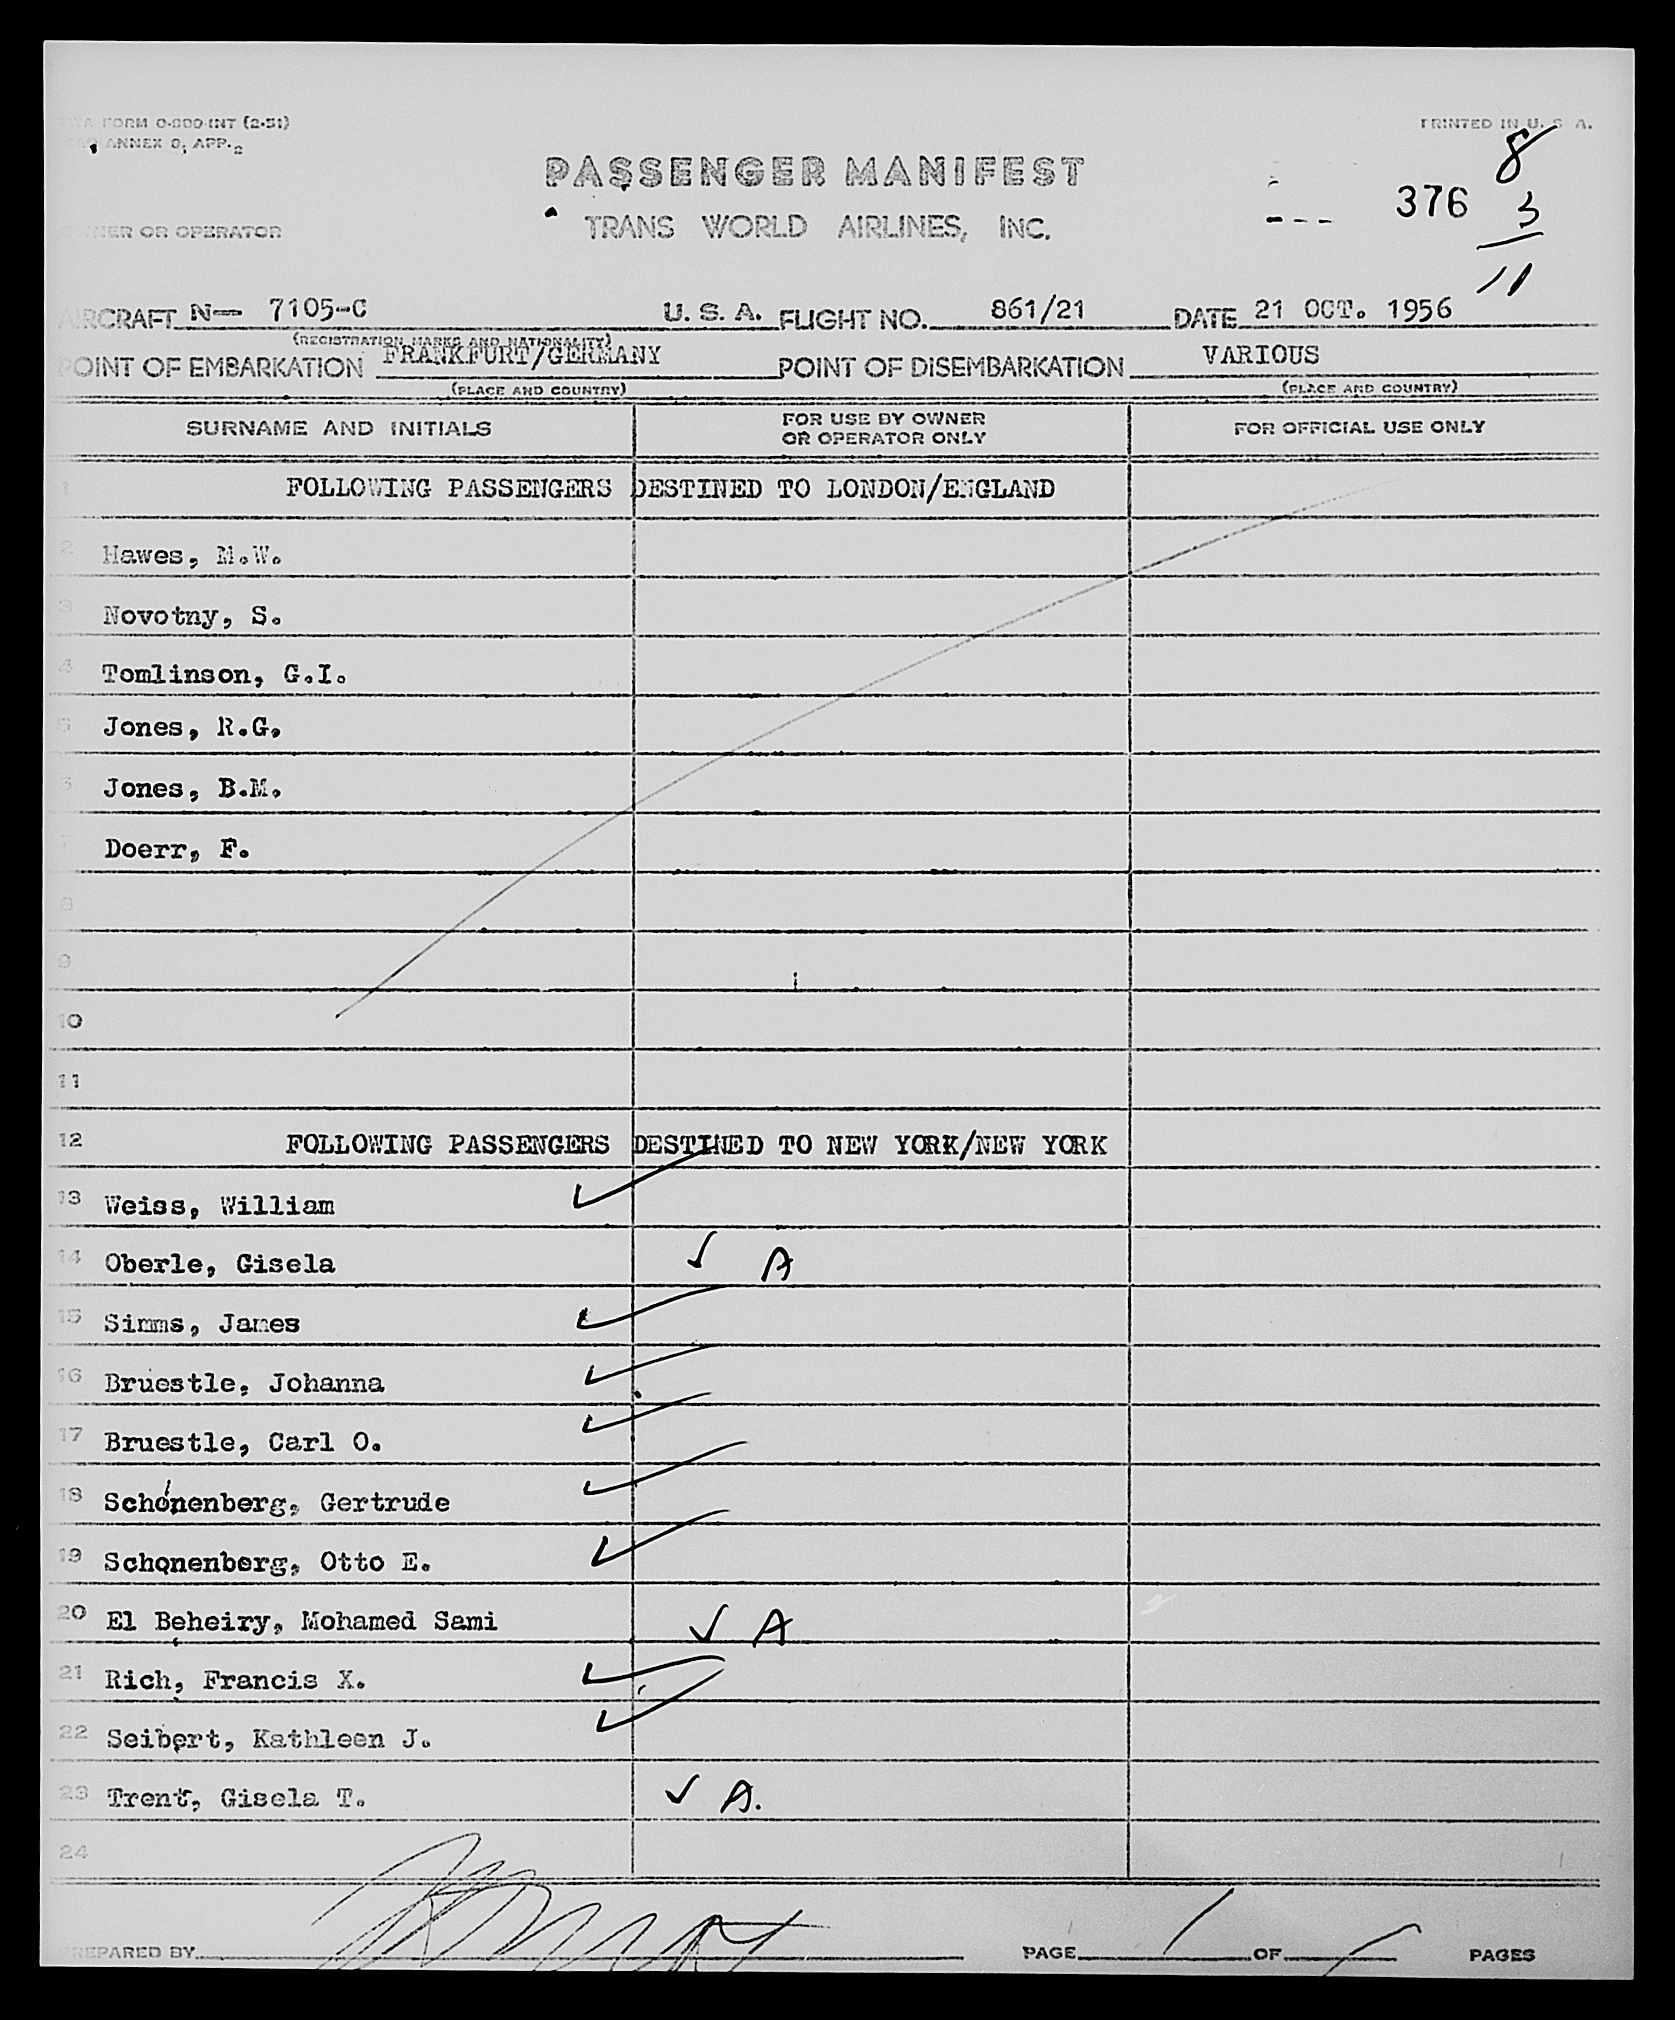 FORM O-800-INT (2-51)
PRINTED IN U. S. A.
ANNEX 9, APP. 2
8
PASSENGER MANIFEST
376 3
TRANS WORLD AIRLINES, INC.
OWNER OR OPERATOR
11
AIRCRAFT N— 7105-C U. S. A. FLIGHT NO. 861/21 DATE 21 OCT. 1956
(REGISTRATION MARKS AND NATIONALITY)
POINT OF EMBARKATION FRANKFURT/GERMANY POINT OF DISEMBARKATION VARIOUS
(PLACE AND COUNTRY) (PLACE AND COUNTRY)
SURNAME AND INITIALS FOR USE BY OWNER OR OPERATOR ONLY FOR OFFICIAL USE ONLY
1 FOLLOWING PASSENGERS DESTINED TO LONDON/ENGLAND
2 Hawes, M.W.
3 Novotny, S.
4 Tomlinson, G.I.
5 Jones, R.G.
6 Jones, B.M.
7 Doerr, F.
8
9
10
11
12 FOLLOWING PASSENGERS DESTINED TO NEW YORK/NEW YORK
13 Weiss, William ✓
14 Oberle, Gisela ✓ A
15 Simms, James ✓
16 Bruestle, Johanna ✓
17 Bruestle, Carl O. ✓
18 Schonenberg, Gertrude ✓
19 Schonenberg, Otto E. ✓
20 El Beheiry, Mohamed Sami ✓ A
21 Rich, Francis X. ✓
22 Seibert, Kathleen J. ✓
23 Trent, Gisela T. ✓ A.
24
PREPARED BY PAGE 1 OF 1 PAGES